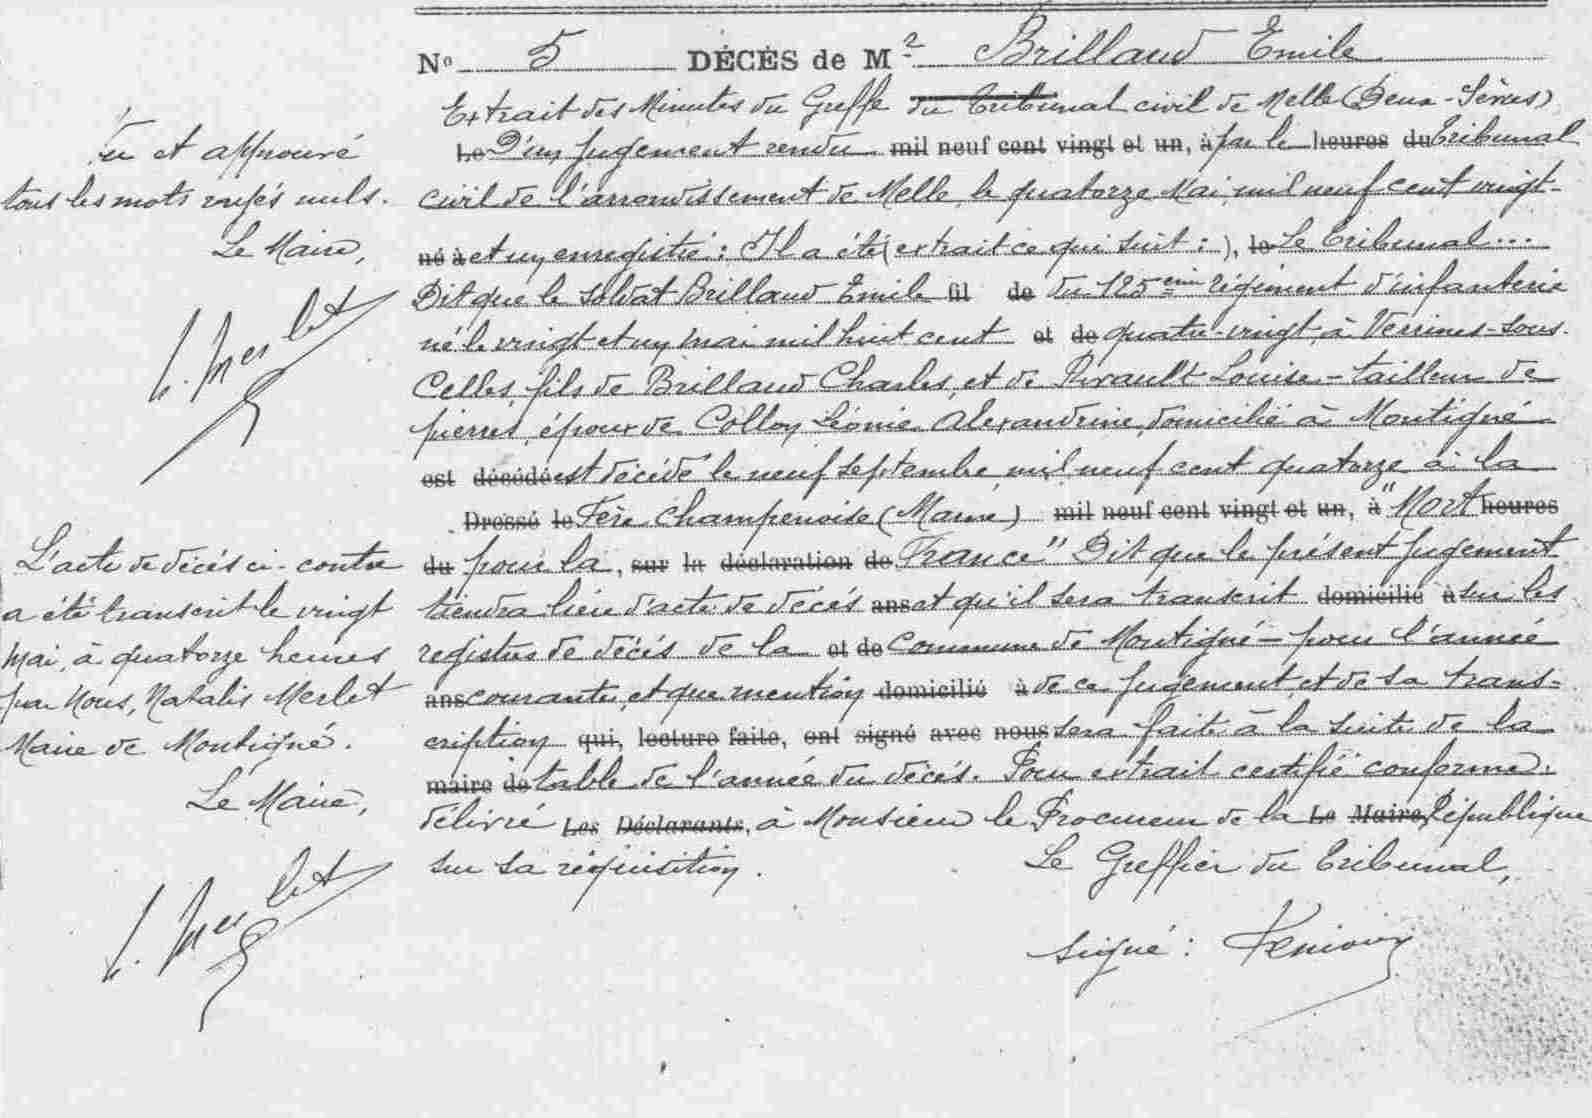 No 5 DÉCÈS de Mr Brillaud Emile
Extrait des Minutes du Greffe du Tribunal civil de Melle (Deux-Sèvres)
Le D'un jugement rendu mil neuf cent vingt et un, à par le heures du Tribunal
civil de l'arrondissement de Melle le quatorze Mai mil neuf cent vingt-
né à et un enregistré : Il a été (extrait ce qui suit :), le Le Tribunal...
Dit que le soldat Brillaud Emile fil de du 125eme régiment d'infanterie
né le vingt et un mai mil huit cent et de quatre-vingt, à Verrines-sous-
Celles, fils de Brillaud Charles, et de Louise - tailleur de
pierres, époux de Collon Léonie Alexandrine, domicilié à Montigné
est décédé est décédé le neuf septembre mil neuf cent quatorze à la
Dressé le Fère Champenoise (Marne) mil neuf cent vingt et un, à "Mort heures
du pour la, sur la déclaration de France" Dit que le présent jugement
tiendra lieu d'acte de décés ans et qu'il sera transcrit domicilié à sur les
registres de décés de la et de Commune de Montigné - pour l'année
ans courante, et que mention domicilié à de ce jugement et de sa trans-
cription qui, lecture faite, ont signé avec nous sera faite à la suite de la
maire de table de l'année du décés. Pour extrait certifié conforme.
délivré Les Déclarants, à Monsieur le Procureur de la Le Maire, République
sur sa réquisition.
Le Greffier du Tribunal,
signé :
Vu et approuvé
tous les mots rayés nuls.
Le Maire,
Merlet
L'acte de décés ci-contre
a été transcrit le vingt
Mai, à quatorze heures
par Nous, Natalis Merlet
Maire de Montigné.
Le Maire,
Merlet